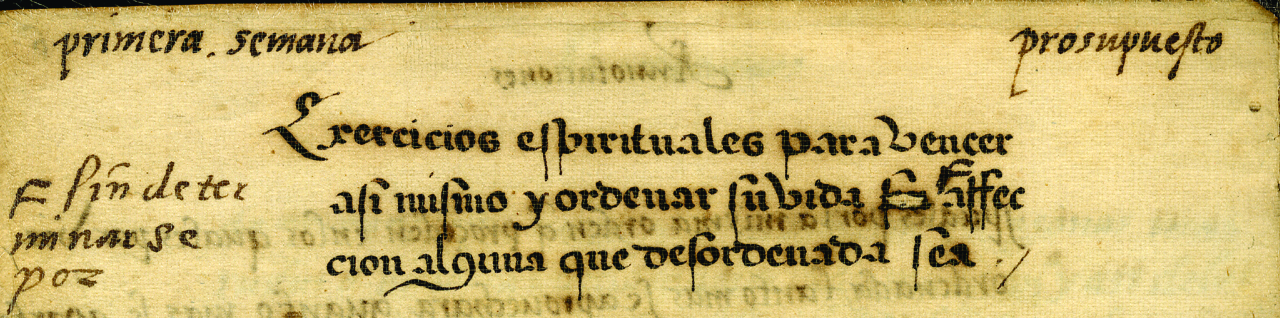 primera. semana
prosupuesto
Exercicios espirituales para vencer
asi mismo y ordenar su vida affec
cion alguna que desordenada sea
sin deter
minarse
por